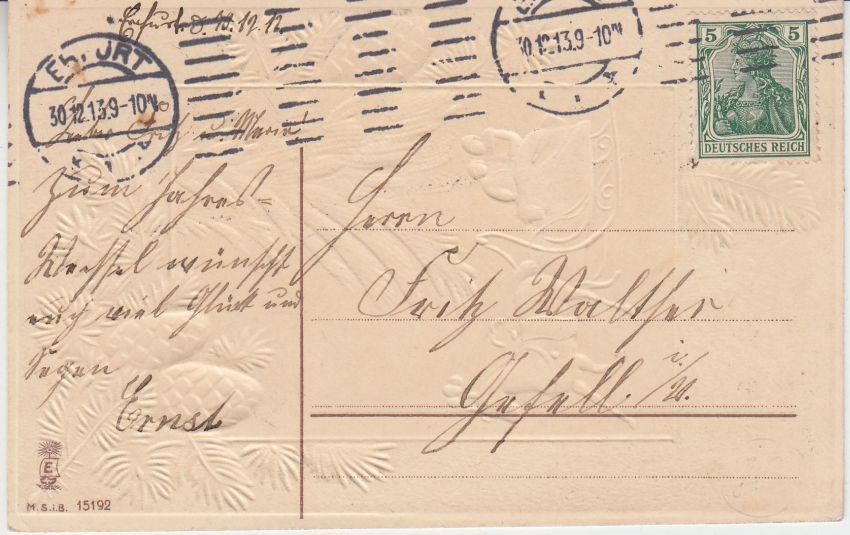 Erfurt d. 30.12.12
ERFURT
30.12.13.9-10N.
30.12.13.9-10N
5 5
DEUTSCHES REICH
Liebe Fritz u. Maria!
Zum Jahres-
Wechsel wünscht
euch viel Glück und
Segen
Ernst
Herrn
Fritz Walther
Gefell i/V.
E
M.S.i.B. 15192